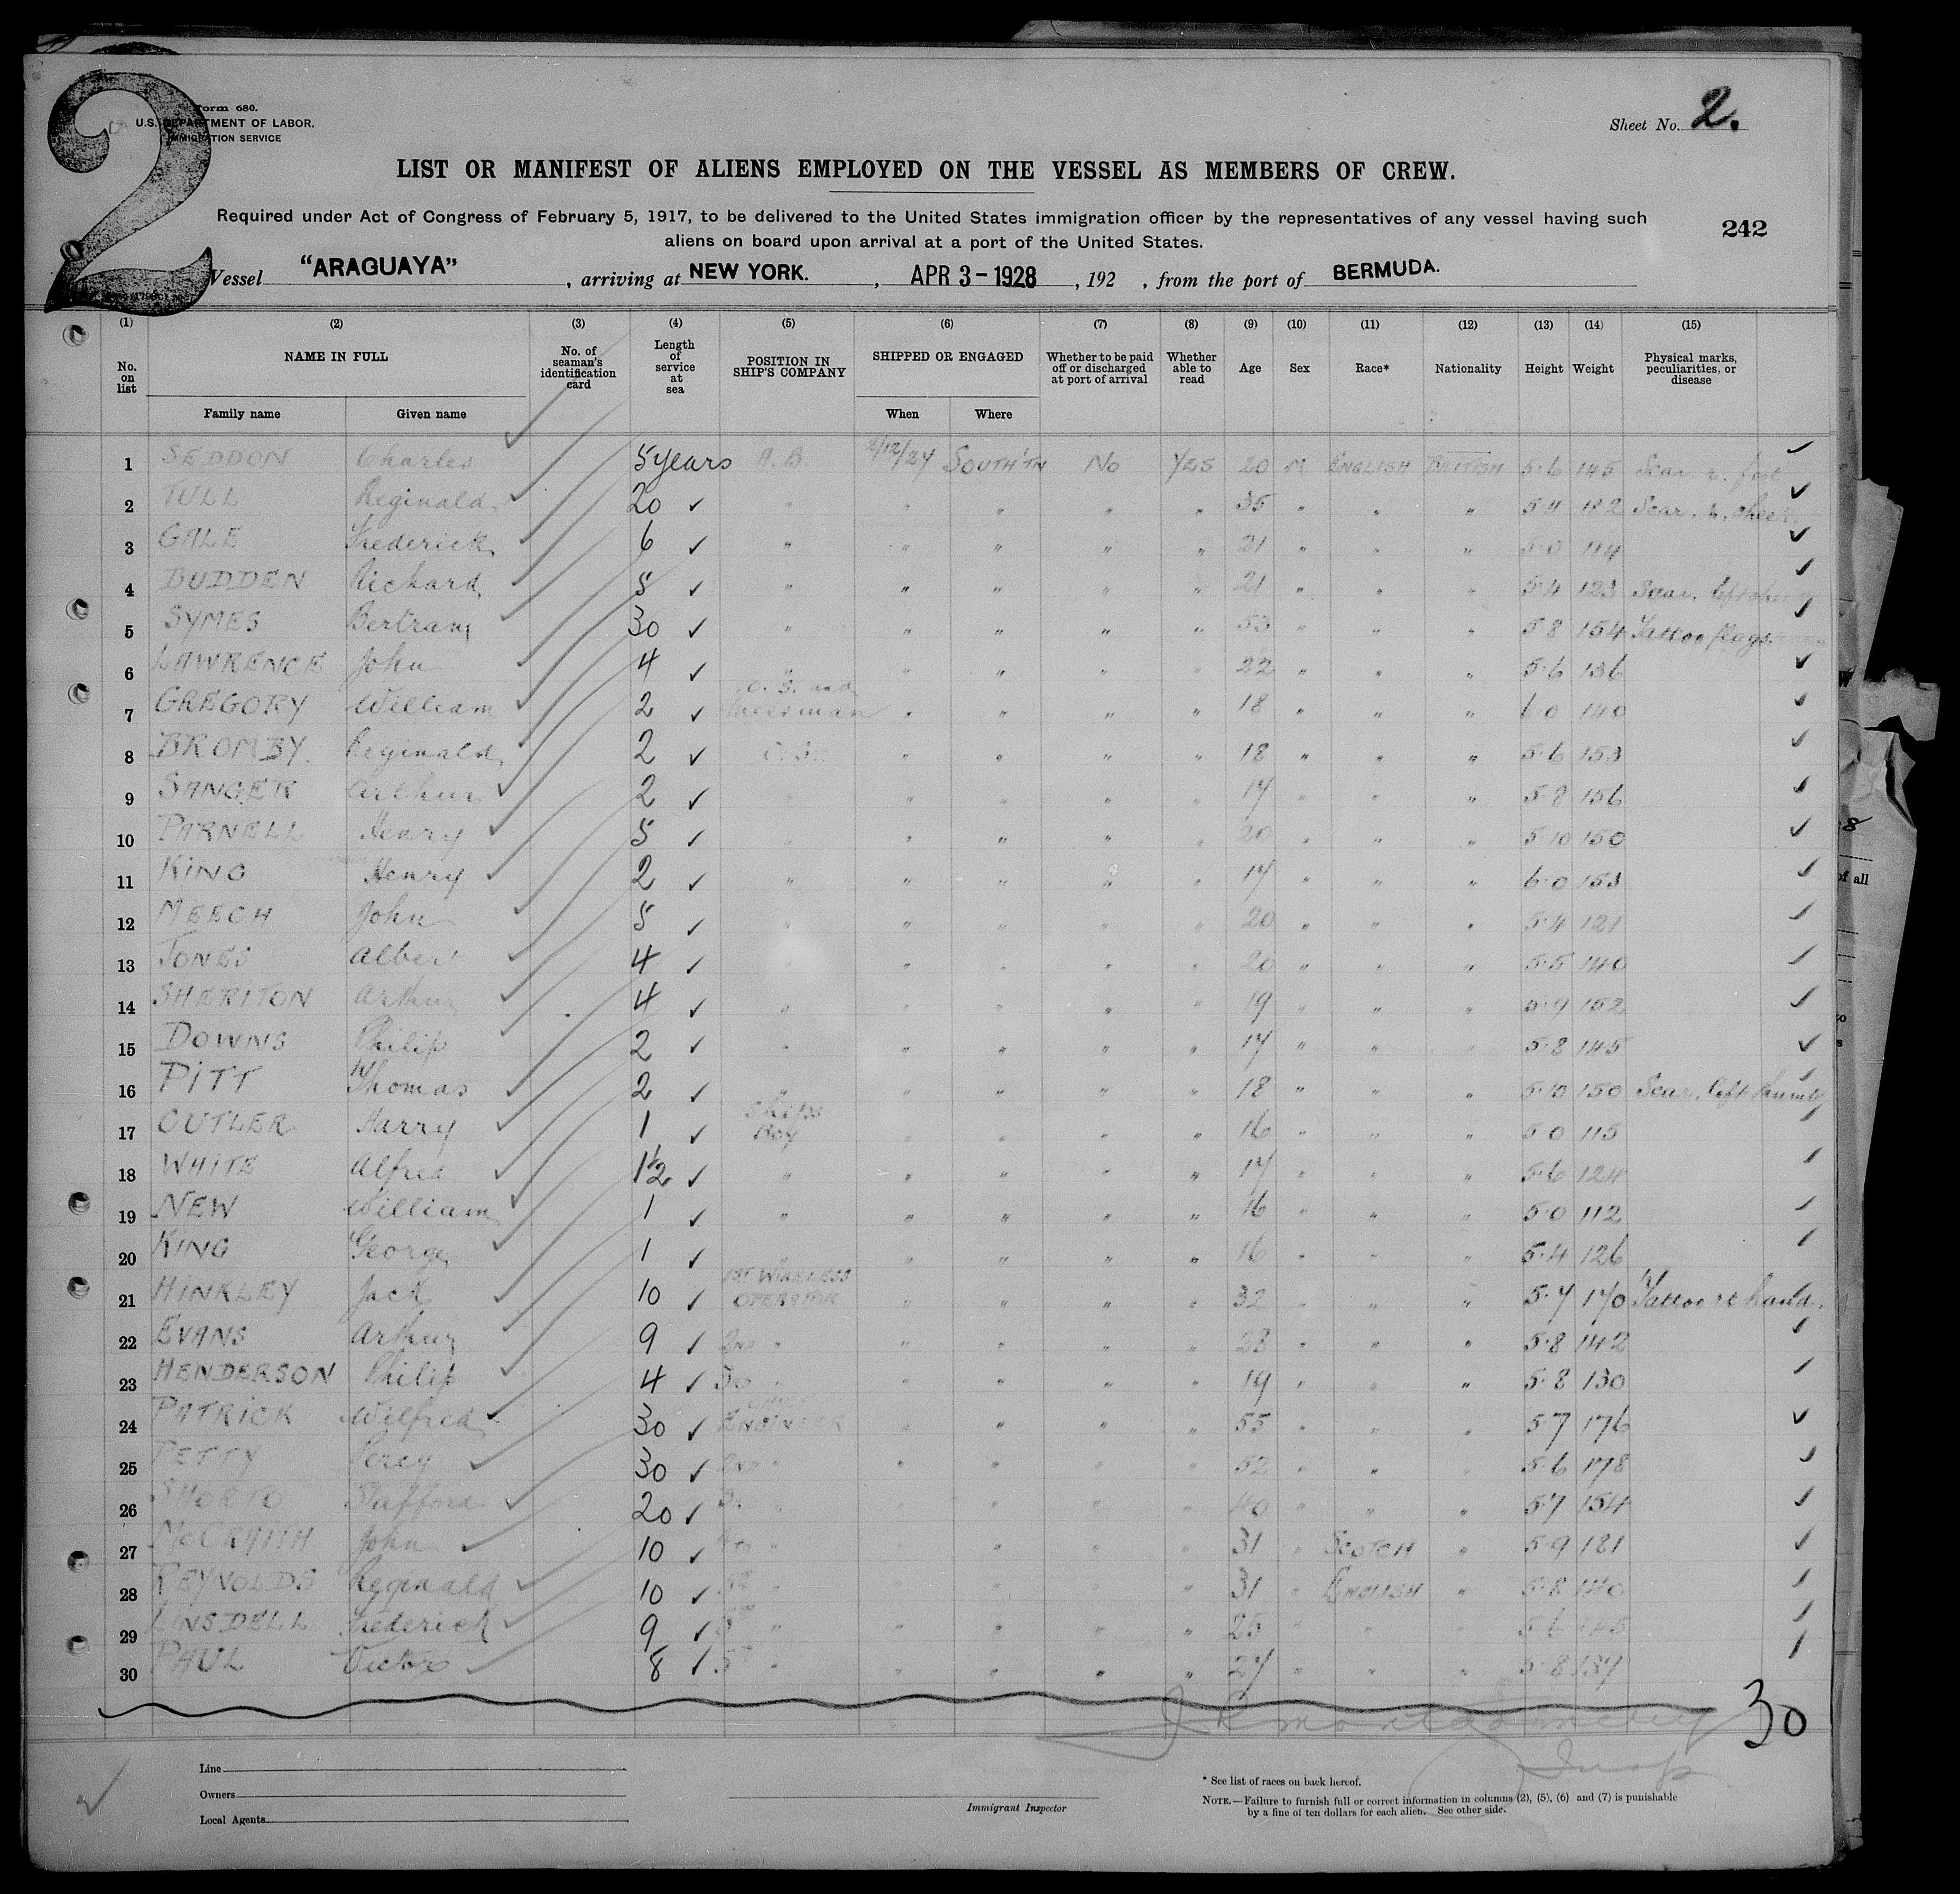 2
Form 680.
U.S. DEPARTMENT OF LABOR.
IMMIGRATION SERVICE
Sheet No. 2.
LIST OR MANIFEST OF ALIENS EMPLOYED ON THE VESSEL AS MEMBERS OF CREW.
Required under Act of Congress of February 5, 1917, to be delivered to the United States immigration officer by the representatives of any vessel having such
aliens on board upon arrival at a port of the United States.
242
Vessel "ARAGUAYA", arriving at NEW YORK., APR 3-1928, 192 , from the port of BERMUDA.
(1) (2) (3) (4) (5) (6) (7) (8) (9) (10) (11) (12) (13) (14) (15)
No. on list NAME IN FULL No. of seaman's identification card Length of service at sea POSITION IN SHIP'S COMPANY SHIPPED OR ENGAGED Whether to be paid off or discharged at port of arrival Whether able to read Age Sex Race* Nationality Height Weight Physical marks, peculiarities, or disease
Family name Given name When Where
1 SEDDON Charles 5 years A.B. SOUTH'TN No YES 20 M ENGLISH BRITISH 5·6 145 Scar r. foot
2 TULL Reginald 20 ✓ " " " " " 35 " " " 5·4 182 Scar. r. cheek
3 GALE Frederick 6 ✓ " " " " " 21 " " " 5·0 114
4 BUDDEN Richard 5 ✓ " " " " " 21 " " " 5·4 123 Scar, left
5 SYMES Bertram 30 ✓ " " " " " 53 " " " 5 8 154 Tattoo flags
6 LAWRENCE John 4 ✓ " " " " " 22 " " " 5·6 136
7 GREGORY William 2 ✓ O.S. and Messman " " " " 18 " " " 6 0 140
8 BROMBY. Reginald 2 ✓ O.S. " " " " 18 " " " 5·6 153
9 SANGER Arthur 2 ✓ " " " " " 17 " " " 5·8 156
10 PARNELL Henry 5 ✓ " " " " " 20 " " " 5·10 150
11 KING Henry 2 ✓ " " " " " 17 " " " 6·0 153
12 MEECH John 5 ✓ " " " " " 20 " " " 5·4 121
13 JONES Albert 4 ✓ " " " " " 20 " " " 5·5 140
14 SHERITON Arthur 4 ✓ " " " " " 19 " " " 5·9 152
15 DOWNS Philip 2 ✓ " " " " " 17 " " " 5·8 145
16 PITT Thomas 2 ✓ " " " " " 18 " " " 5·10 150 Scar, left thumb
17 CUTLER Harry 1 ✓ Ships Boy " " " " 16 " " " 5 0 115
18 WHITE Alfred 1½ ✓ " " " " " 17 " " " 5·6 124
19 NEW William 1 ✓ " " " " " 16 " " " 5·0 112
20 KING George 1 ✓ " " " " " 16 " " " 5·4 126
21 HINKLEY Jack 10 ✓ 1ST WIRELESS OPERATOR " " " " 32 " " " 5·7 170 Tattoo rt hand.
22 EVANS Arthur 9 ✓ 2ND " " " " " 28 " " " 5·8 142
23 HENDERSON Philip 4 ✓ " " " " " 19 " " " 5·8 130
24 PATRICK Wilfred 30 ✓ CHIEF ENGINEER " " " " 55 " " " 5·7 176
25 PETTY Percy 30 ✓ 2ND " " " " " 52 " " " 5·6 178
26 Stafford 20 ✓ " " " " " 40 " " " 5·7 154
27 John 10 ✓ " " " " " 31 " SCOTCH " 5·9 181
28 REYNOLDS Reginald 10 ✓ " " " " 31 " ENGLISH " 5·8 140
29 LINSDELL Frederick 9 ✓ " " " " " 25 " " " 5·6 145
30 PAUL Victor 8 ✓ " " " " " 27 " " " 5·8 137
30
Line
Owners
Local Agents
Immigrant Inspector
* See list of races on back hereof.
NOTE.—Failure to furnish full or correct information in columns (2), (5), (6) and (7) is punishable
by a fine of ten dollars for each alien. See other side.